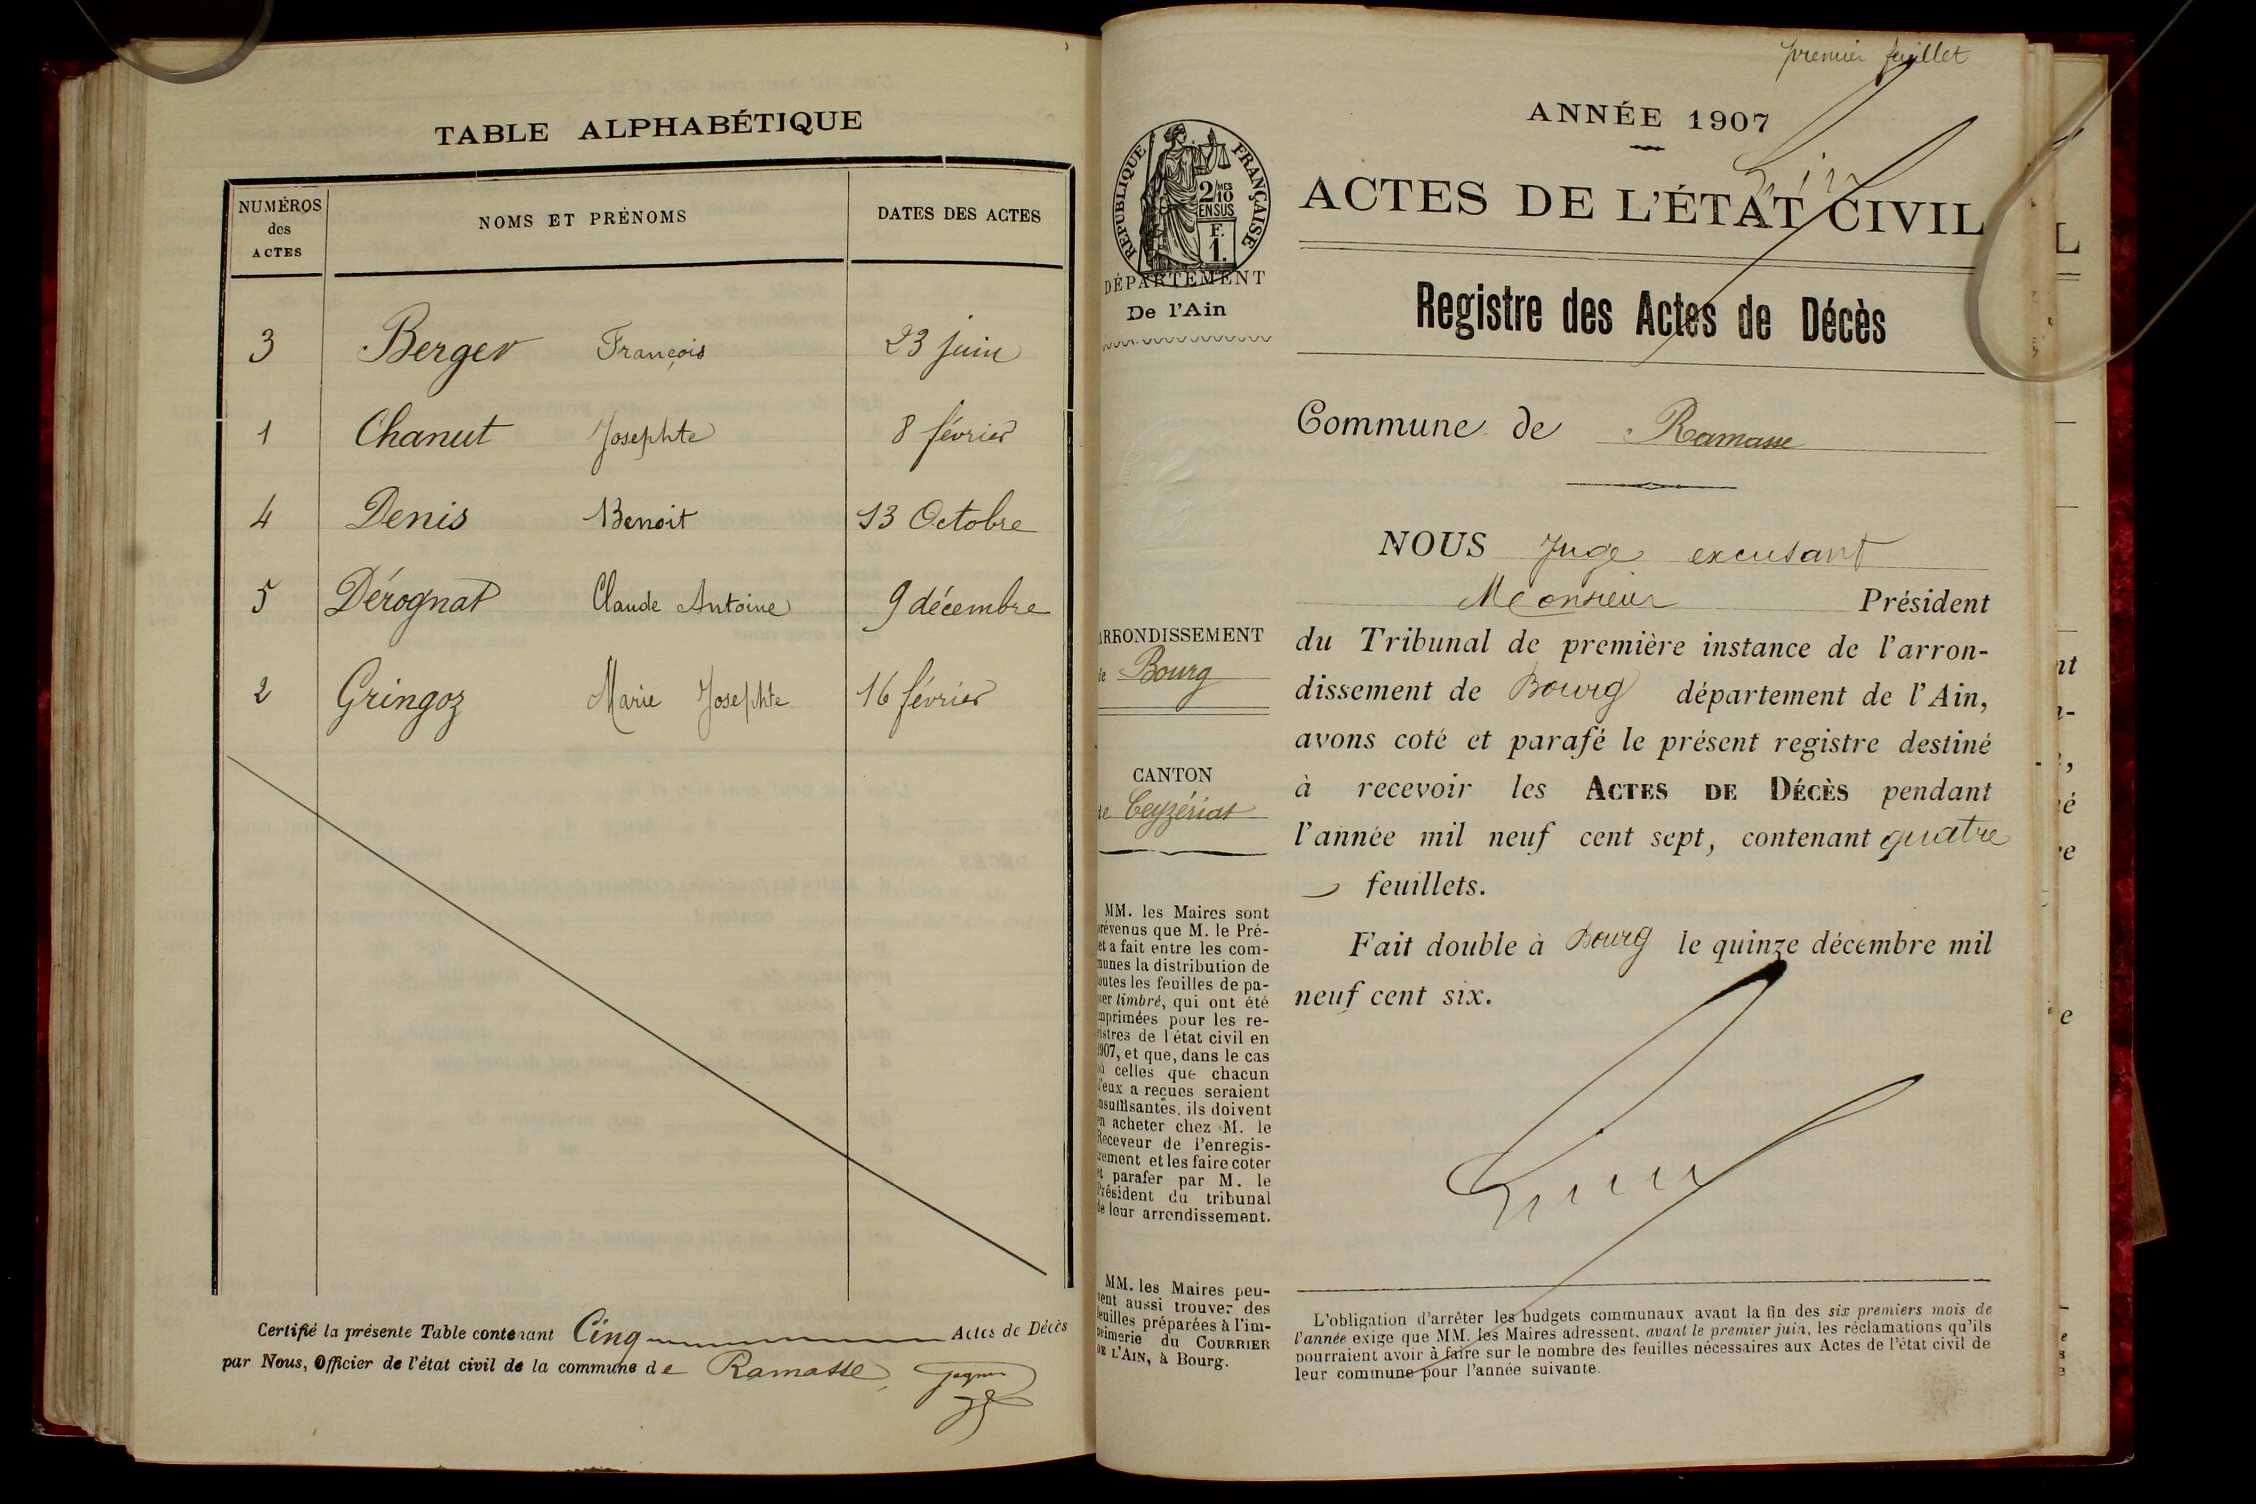 TABLE ALPHABÉTIQUE
NUMÉROS des ACTES
NOMS ET PRÉNOMS
DATES DES ACTES
3 Berger François 23 juin
1 Chanut Josephte 8 février
4 Denis Benoit 13 Octobre
5 Dérognat Claude Antoine 9 décembre
2 Gringoz Marie Josephte 16 février
Certifié la présente Table contenant Cinq Actes de Décès
par Nous, Officier de l'état civil de la commune de Ramasse,
premier feuillet
RÉPUBLIQUE FRANÇAISE
2/10 MES
EN SUS
F.
1.
DÉPARTEMENT
De l'Ain
ARRONDISSEMENT
de Bourg
CANTON
de Ceyzériat
MM. les Maires sont
prévenus que M. le Pré-
fet a fait entre les com-
munes la distribution de
toutes les feuilles de pa-
pier timbré, qui ont été
imprimées pour les re-
gistres de l'état civil en
1907, et que, dans le cas
où celles que chacun
d'eux a reçues seraient
insuffisantes, ils doivent
en acheter chez M. le
Receveur de l'enregis-
trement et les faire coter
et parafer par M. le
Président du tribunal
de leur arrondissement.
MM. les Maires peu-
vent aussi trouver des
feuilles préparées à l'im-
primerie du COURRIER
DE L'AIN, à Bourg.
ANNÉE 1907
ACTES DE L'ÉTAT CIVIL
Registre des Actes de Décès
Commune de Ramasse
NOUS Juge excusant
Monsieur Président
du Tribunal de première instance de l'arron-
dissement de Bourg département de l'Ain,
avons coté et parafé le présent registre destiné
à recevoir les ACTES DE DÉCÈS pendant
l'année mil neuf cent sept, contenant quatre
feuillets.
Fait double à Bourg le quinze décembre mil
neuf cent six.
L'obligation d'arrêter les budgets communaux avant la fin des six premiers mois de
l'année exige que MM. les Maires adressent, avant le premier juin, les réclamations qu'ils
pourraient avoir à faire sur le nombre des feuilles nécessaires aux Actes de l'état civil de
leur commune pour l'année suivante.